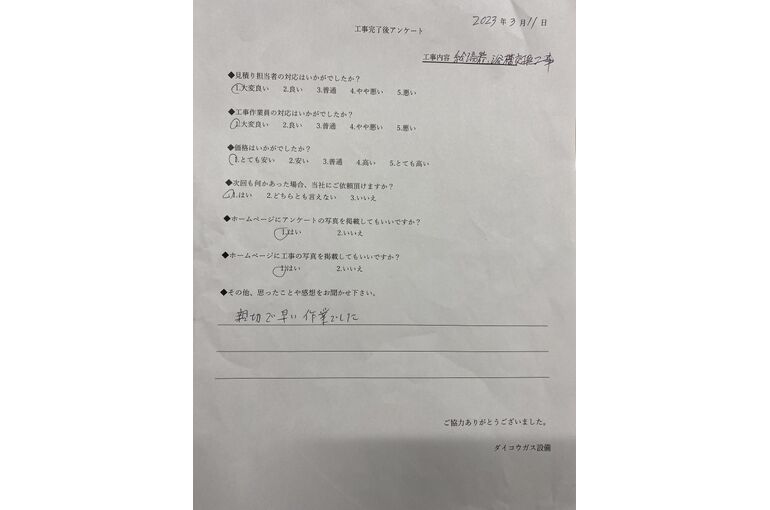 2023年3月11日
工事完了後アンケート
工事内容 給湯器、浴槽交換工事
◆見積り担当者の対応はいかがでしたか？
1.大変良い 2.良い 3.普通 4.やや悪い 5.悪い
◆工事作業員の対応はいかがでしたか？
1.大変良い 2.良い 3.普通 4.やや悪い 5.悪い
◆価格はいかがでしたか？
1.とても安い 2.安い 3.普通 4.高い 5.とても高い
◆次回も何かあった場合、当社にご依頼頂けますか？
1.はい 2.どちらとも言えない 3.いいえ
◆ホームページにアンケートの写真を掲載してもいいですか？
1.はい 2.いいえ
◆ホームページに工事の写真を掲載してもいいですか？
1.はい 2.いいえ
◆その他、思ったことや感想をお聞かせ下さい。
親切で早い作業でした
ご協力ありがとうございました。
ダイコウガス設備